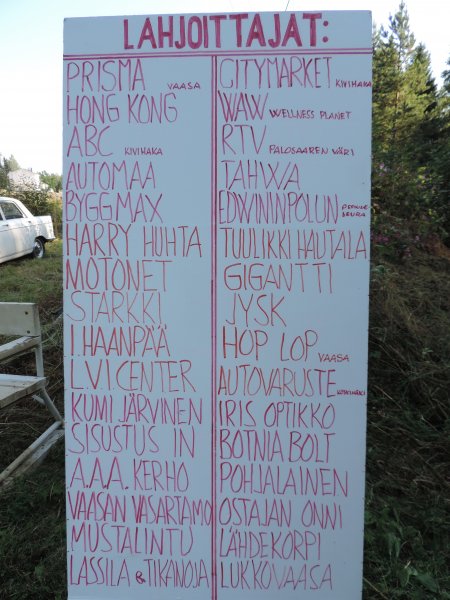 LAHJOITTAJAT:
PRISMA VAASA
HONG KONG
ABC KIVIHAKA
AUTOMAA
BYGGMAX
HARRY HUHTA
MOTONET
STARKKI
I.HAANPÄÄ
L.V.I.CENTER
KUMI JÄRVINEN
SISUSTUS IN
A.A.A. KERHO
VAASAN VASARTAMO
MUSTALINTU
LASSILA & TIKANOJA
CITYMARKET KIVIHAKA
WAW WELLNESS PLANET
RTV PALOSAAREN VÄRI
TAHWA
EDWININPOLUN PERINNE SEURA
TUULIKKI HAUTALA
GIGANTTI
JYSK
HOP LOP VAASA
AUTOVARUSTE
IRIS OPTIKKO
BOTNIA BOLT
POHJALAINEN
OSTAJAN ONNI
LÄHDEKORPI
LUKKOVAASA